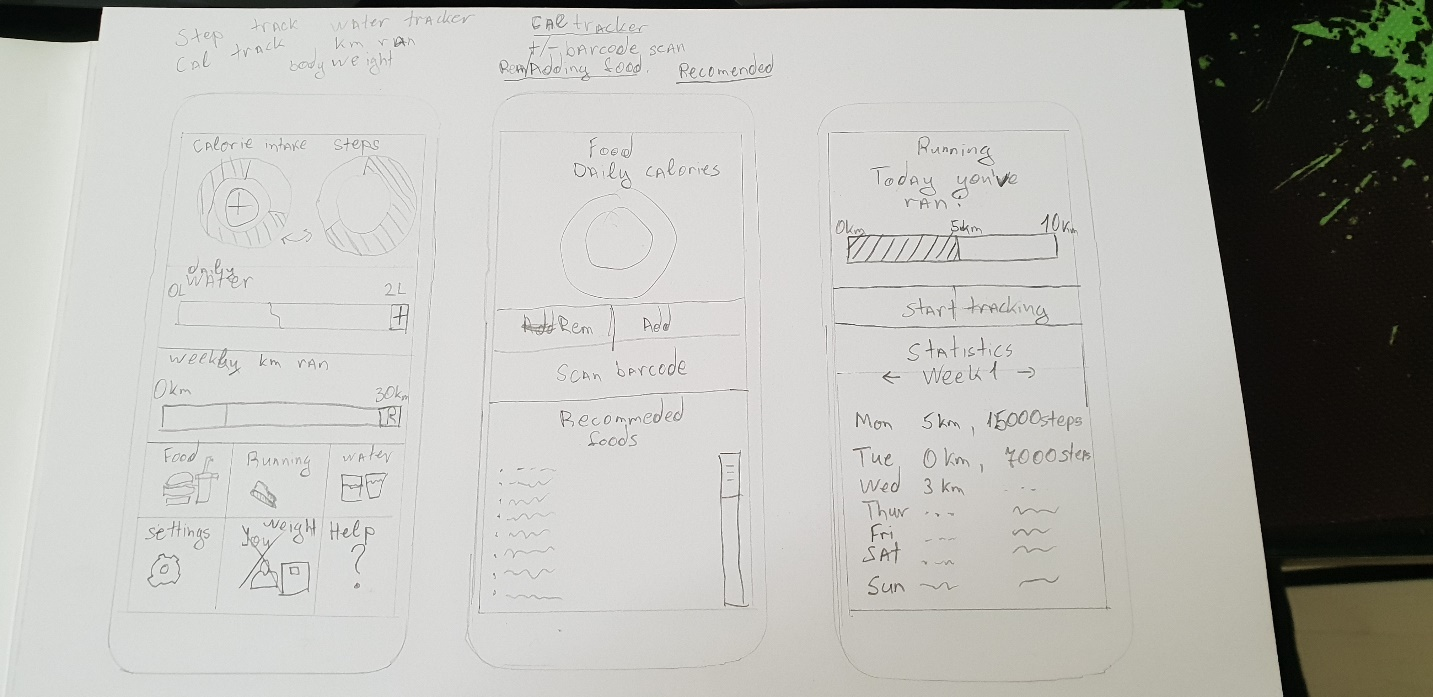 Step track water tracker
Cal track km ran
body weight
CAL tracker
+/- barcode scan
Rem/Adding food. Recomended
Calorie intake Steps
daily
Water
0L 2L
weekly km ran
0km 30km
R
Food Running Water
Settings You Weight Help
?
Food
Daily calories
Add Rem Add
Scan barcode
Recommeded
foods
Running
Today you've
ran:
0km 5km 10km
Start tracking
Statistics
← Week 1 →
Mon 5km, 15000steps
Tue, 0km, 7000steps
Wed 3km ...
Thur ...
Fri ---
SAT
Sun